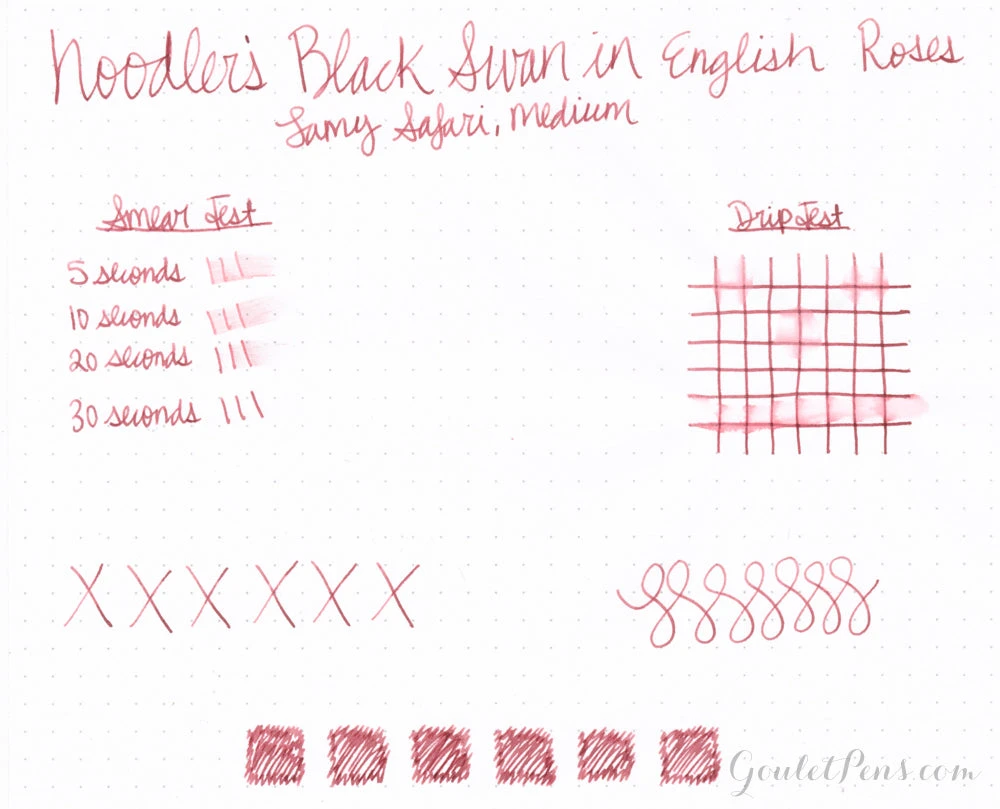 Noodler's Black Swan in English Roses
Lamy Safari, Medium
Smear Test
5 seconds
10 seconds
20 seconds
30 seconds
Drip Test
X X X X X X
GouletPens.com